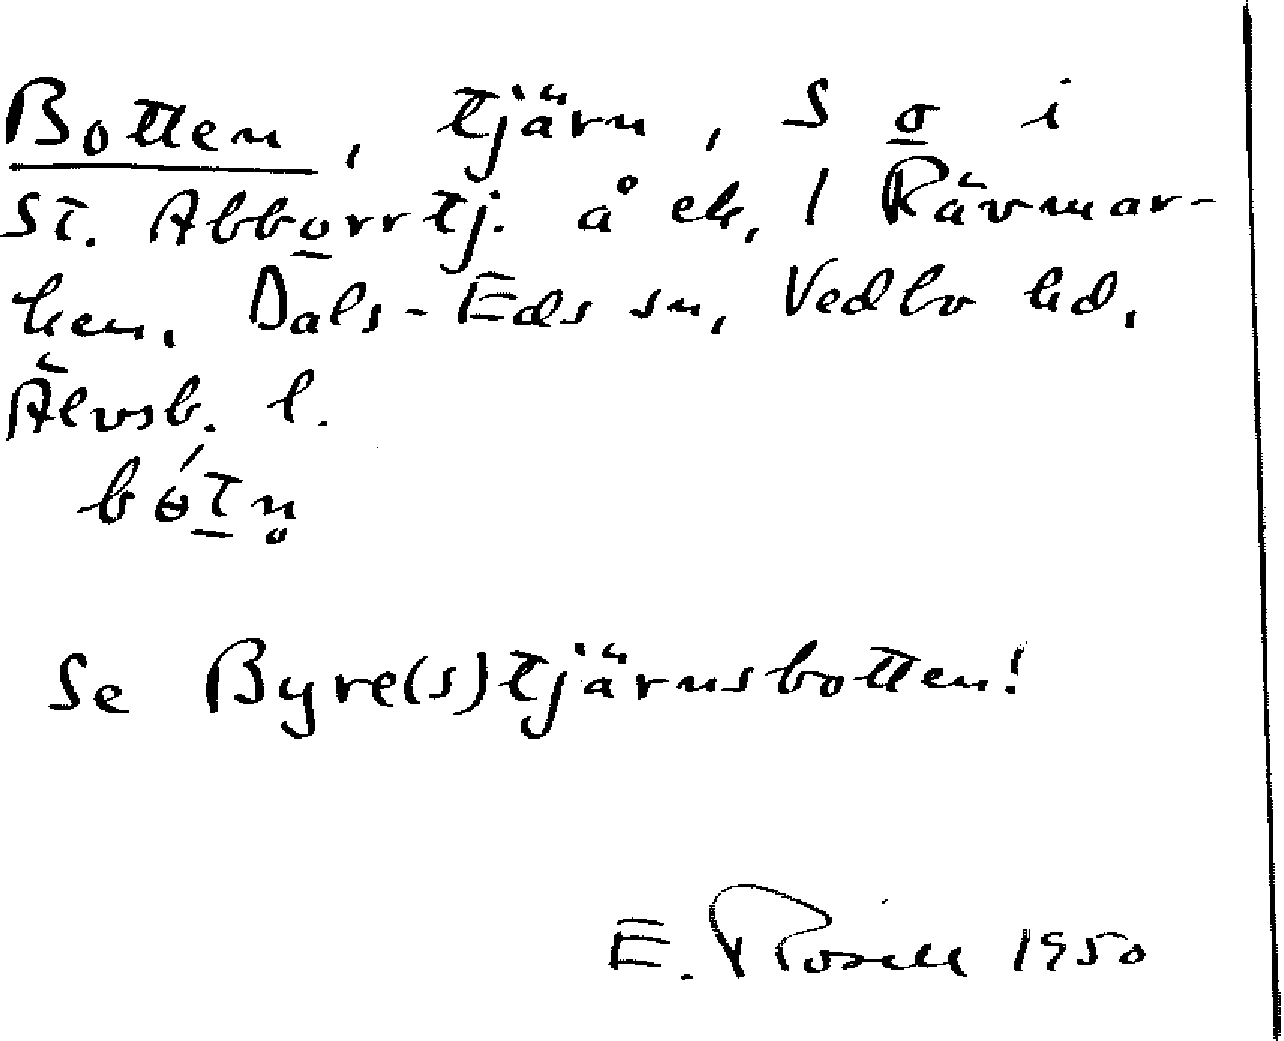 Botten, tjärn, S o i
St. Abborrtj. å ek, 1 Rävmar-
ken, Dals-Eds sn, Vedbo hd,
Älvsb. l.
Se Byre(s)tjärnsbotten!
E. Rosell 1950